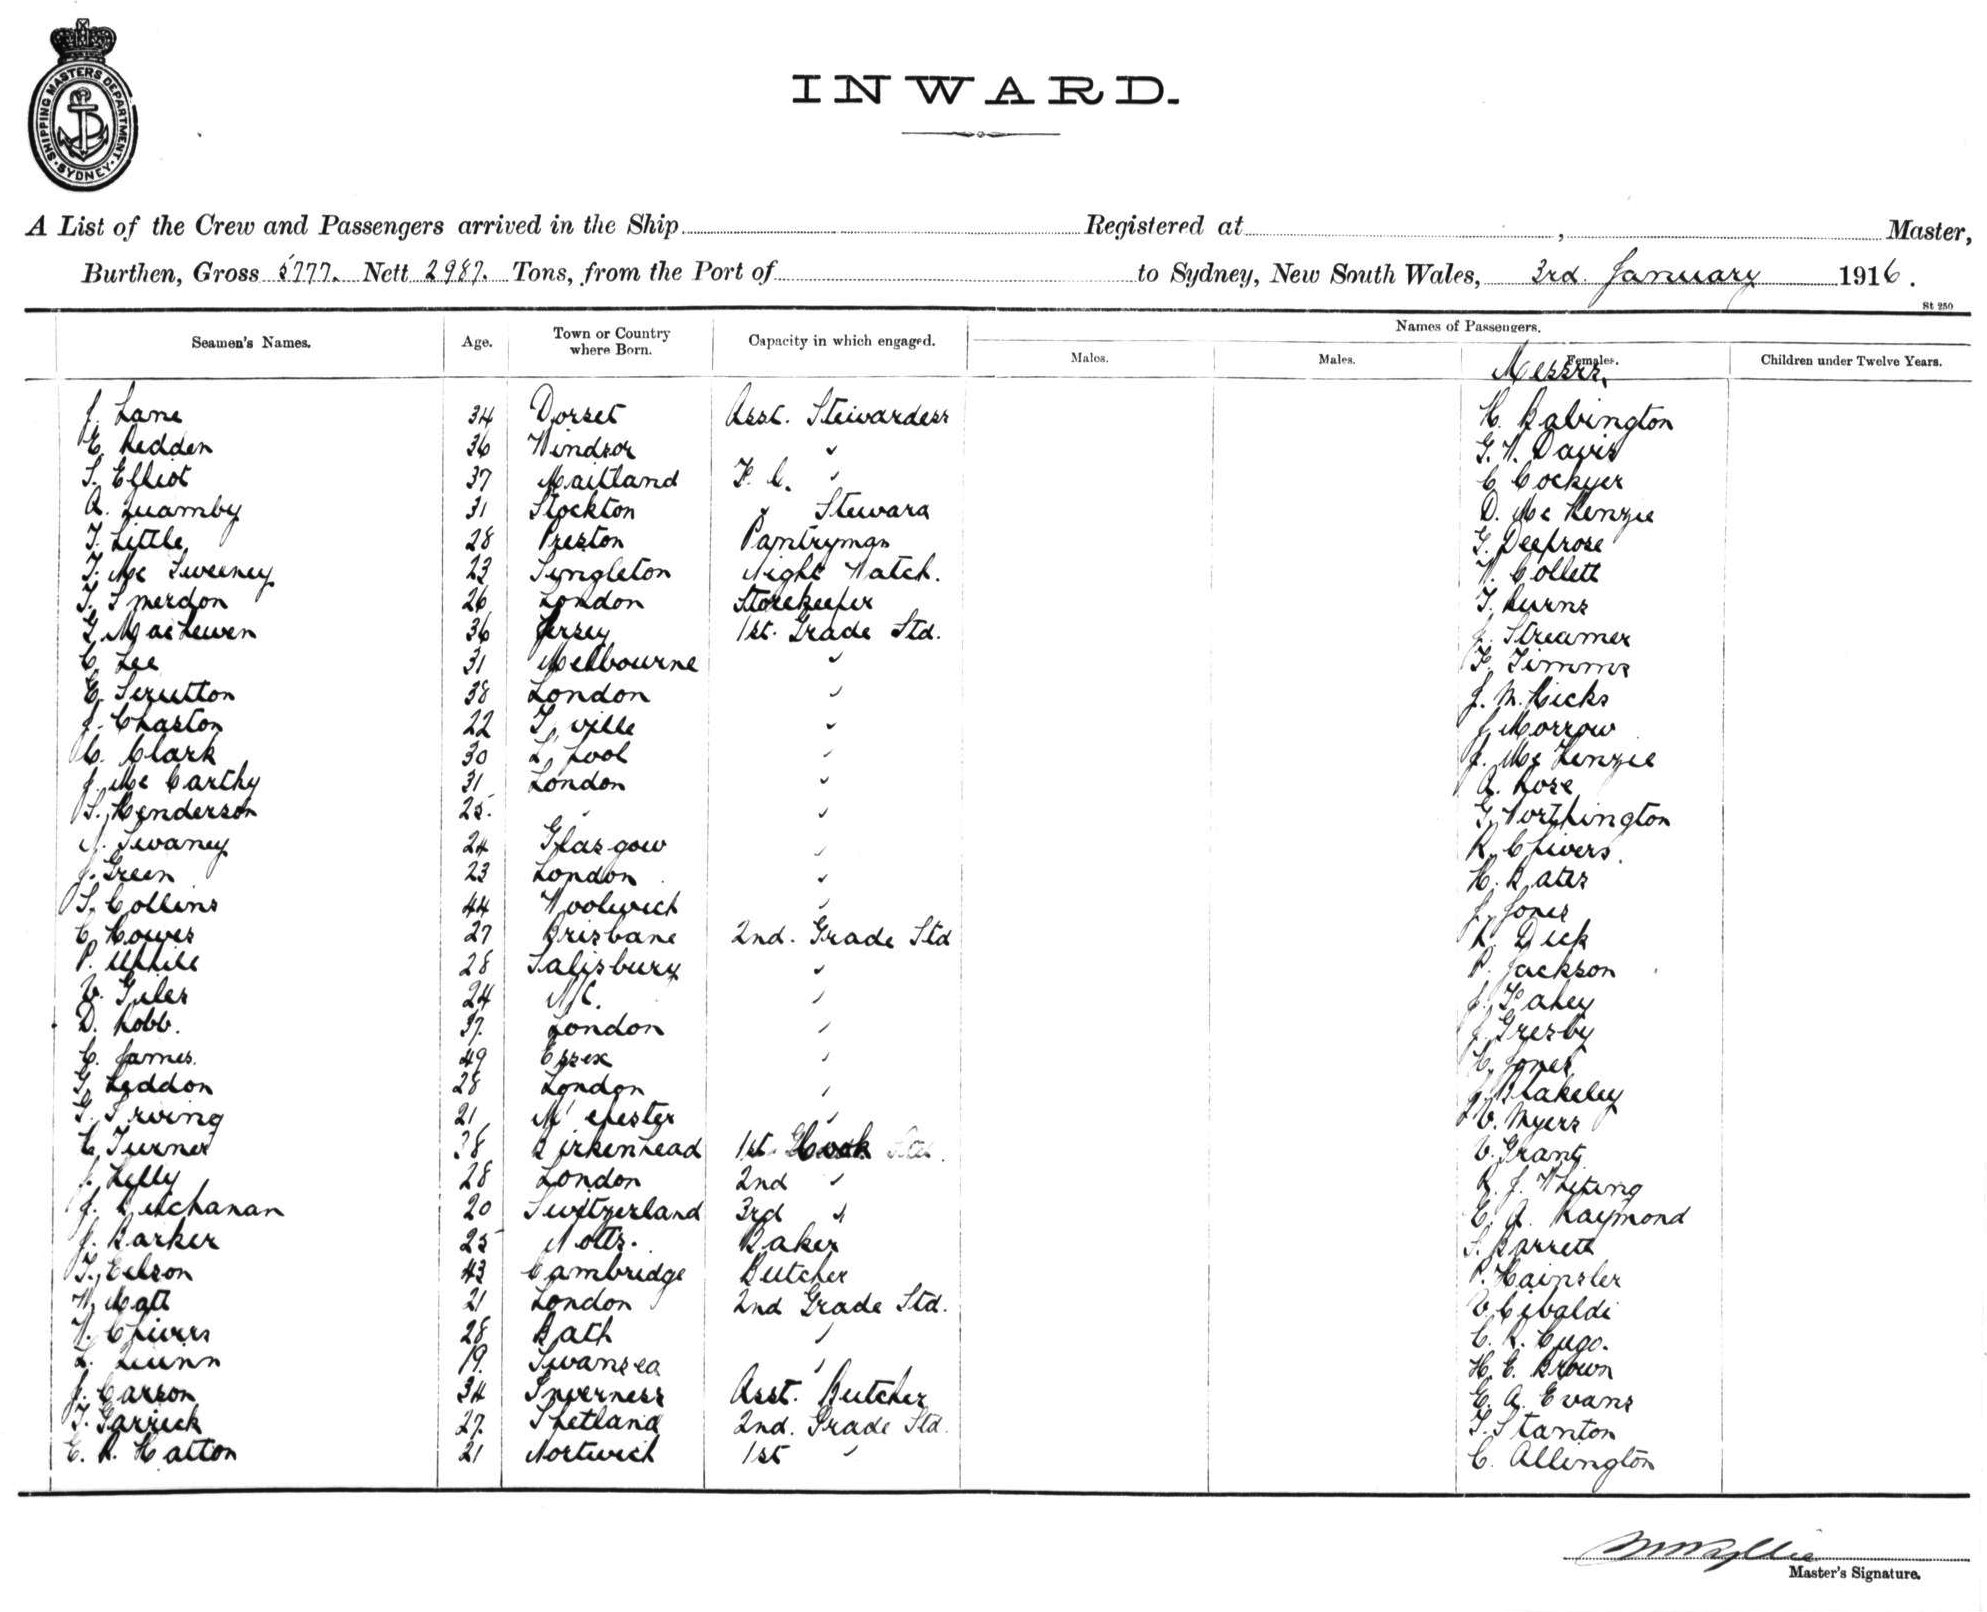 SHIPPING MASTERS DEPARTMENT. SYDNEY
INWARD.
A List of the Crew and Passengers arrived in the Ship Registered at , Master,
Burthen, Gross 5777. Nett 2987. Tons, from the Port of to Sydney, New South Wales, 3rd. January 1916.
St 250
Seamen's Names. Age. Town or Country where Born. Capacity in which engaged. Names of Passengers.
Males. Males. Females. Children under Twelve Years.
Messrs.
J. Lane 34 Dorset Asst. Stewardess H. Babington
E. Redden 36 Windsor " G. W. Davis
S. Elliot 37 Maitland F. C. " C. Cockyer
A. Quamby 31 Stockton " Steward D. McKenzie
T. Little 28 Preston Pantryman G. Deeprose
T. Mc Sweeney 23 Singleton Night Watch. W. Collett
T. Smerdon 26 London Storekeeper T. Burns
G. MacLewen 36 Jersey 1st. Grade Std. J. Streamer
C. Lee 31 Melbourne " F. Timms
E. Scrutton 38 London " J. M. Hicks
J. Chaston 22 T, ville " J. Morrow
C. Clark 30 L, pool " J. McKenzie
J. Mc Carthy 31 London " A. Rose
S. Henderson 25. " " G. Worthington
Swaney 24 Glasgow " R. Chivers.
J. Green 23 London " H. Bates
S. Collins 44 Woolwich " J. Jones
C. Howes 27 Brisbane 2nd. Grade Std R. Dick
P. Uphill 28 Salisbury " P. Jackson
V. Giles 24 N/C. " J. Fahey
D. Robb. 37. London " J. Gresby
C. James. 49 Essex " C. Jones
G. Leddon 28 London " J. Blakeley
G. Irving 21 M'chester " V. Myers
C. Turner 38 Birkenhead 1st Cook V. Grant
J. Kelly 28 London 2nd " R. J. Whiting
J. Buchanan 20 Switzerland 3rd " E. A. Raymond
J. Barker 25 Notts. Baker S. Barrett
T. Eelson 43 Cambridge Butcher P. Hainsler
W. Matt 21 London 2nd Grade Std. V. Cibaldi
W. Chivers 28 Bath " C. R. Cugo.
L. Quinn 19. Swansea " H. E. Brown
J. Carson 34 Inverness Asst. Butcher E. A. Evans
T. Garrick 27. Shetland 2nd. Grade Std. T. Stanton
E. R. Hatton 21 Nortwich 1st " C. Allington
Master's Signature.